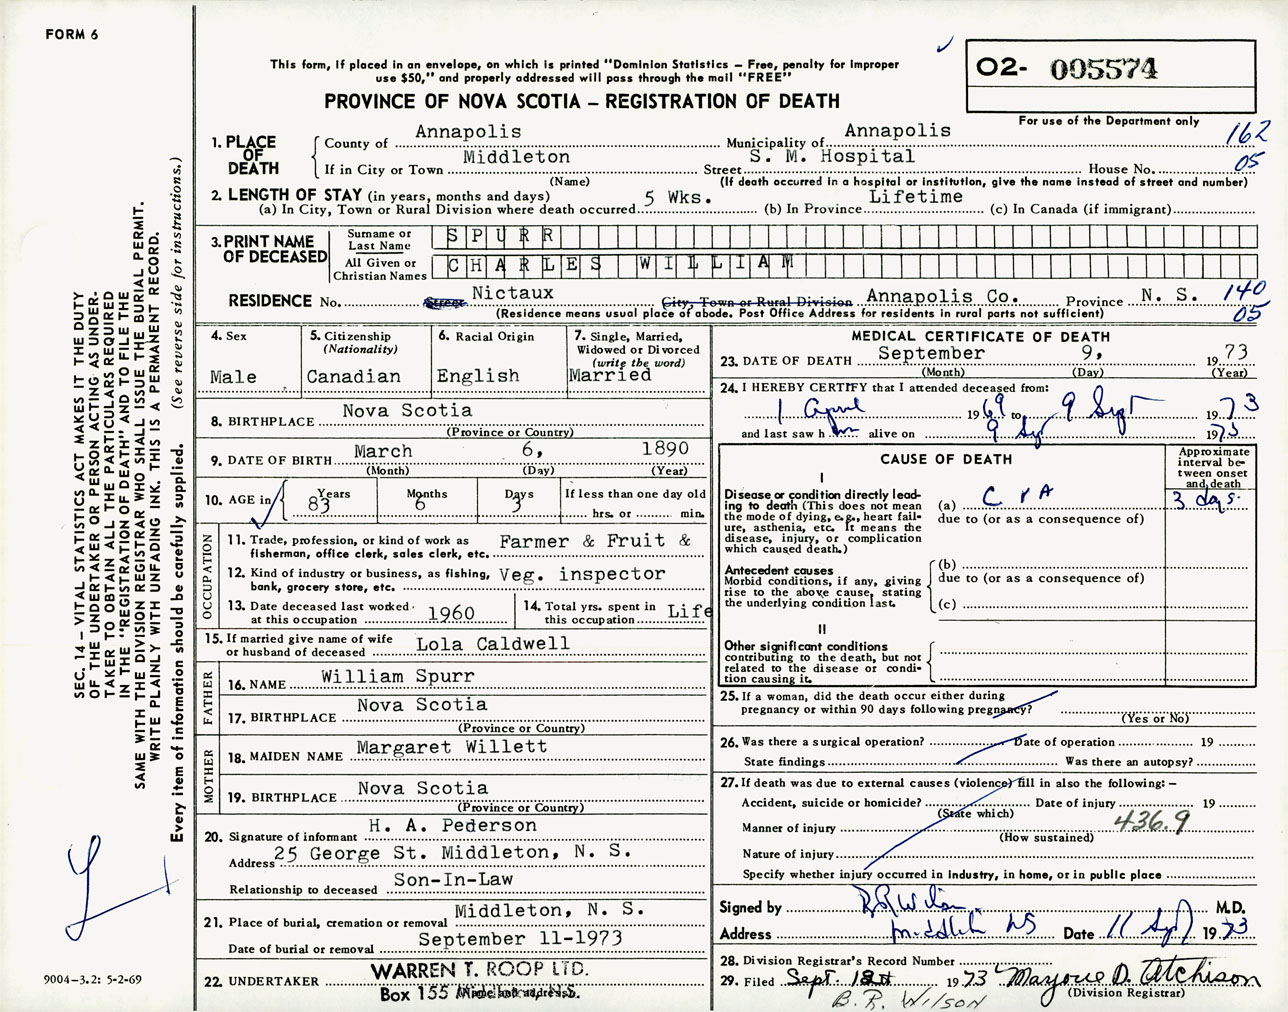 FORM 6
This form, if placed in an envelope, on which is printed "Dominion Statistics – Free, penalty for improper
use $50," and properly addressed will pass through the mail "FREE"
PROVINCE OF NOVA SCOTIA – REGISTRATION OF DEATH
O2- 005574
For use of the Department only
1. PLACE OF DEATH
County of Annapolis Municipality of Annapolis 162
If in City or Town Middleton Street S. M. Hospital House No. 05
(Name) (If death occurred in a hospital or institution, give the name instead of street and number)
2. LENGTH OF STAY (in years, months and days)
(a) In City, Town or Rural Division where death occurred 5 Wks. (b) In Province Lifetime (c) In Canada (if immigrant)
3. PRINT NAME OF DECEASED
Surname or Last Name SPURR
All Given or Christian Names CHARLES WILLIAM
RESIDENCE No. Street Nictaux City, Town or Rural Division Annapolis Co. Province N. S. 140
(Residence means usual place of abode. Post Office Address for residents in rural parts not sufficient) 05
4. Sex
Male
5. Citizenship
(Nationality)
Canadian
6. Racial Origin
English
7. Single, Married,
Widowed or Divorced
(write the word)
Married
8. BIRTHPLACE Nova Scotia
(Province or Country)
9. DATE OF BIRTH March 6, 1890
(Month) (Day) (Year)
10. AGE in Years 83 Months 6 Days 3 If less than one day old
hrs. or min.
OCCUPATION
11. Trade, profession, or kind of work as Farmer & Fruit &
fisherman, office clerk, sales clerk, etc.
12. Kind of industry or business, as fishing, Veg. inspector
bank, grocery store, etc.
13. Date deceased last worked at this occupation 1960
14. Total yrs. spent in this occupation Life
15. If married give name of wife or husband of deceased Lola Caldwell
FATHER
16. NAME William Spurr
17. BIRTHPLACE Nova Scotia
(Province or Country)
MOTHER
18. MAIDEN NAME Margaret Willett
19. BIRTHPLACE Nova Scotia
(Province or Country)
20. Signature of informant H. A. Pederson
Address 25 George St. Middleton, N. S.
Relationship to deceased Son-In-Law
21. Place of burial, cremation or removal Middleton, N. S.
Date of burial or removal September 11-1973
22. UNDERTAKER WARREN T. ROOP LTD.
Box 155
MEDICAL CERTIFICATE OF DEATH
23. DATE OF DEATH September 9, 1973
(Month) (Day) (Year)
24. I HEREBY CERTIFY that I attended deceased from:
1 April 1969 to 9 Sept 1973
and last saw him alive on 9 Sep 1973
CAUSE OF DEATH
Approximate interval between onset and death
I
Disease or condition directly leading to death (This does not mean the mode of dying, e.g., heart failure, asthenia, etc. It means the disease, injury, or complication which caused death.)
(a) CVA 3 days.
due to (or as a consequence of)
Antecedent causes
Morbid conditions, if any, giving rise to the above cause, stating the underlying condition last.
(b)
due to (or as a consequence of)
(c)
II
Other significant conditions
contributing to the death, but not related to the disease or condition causing it.
25. If a woman, did the death occur either during
pregnancy or within 90 days following pregnancy?
(Yes or No)
26. Was there a surgical operation? Date of operation 19
State findings Was there an autopsy?
27. If death was due to external causes (violence) fill in also the following: –
Accident, suicide or homicide? Date of injury 19
(State which)
Manner of injury 436.9
(How sustained)
Nature of injury
Specify whether injury occurred in industry, in home, or in public place
Signed by B R Wilson M.D.
Address Middleton NS Date 11 Sept 1973
28. Division Registrar's Record Number
29. Filed Sept. 1973 Marjorie D. Atchison
(Division Registrar)
B. R. WILSON
SEC. 14 – VITAL STATISTICS ACT MAKES IT THE DUTY
OF THE UNDERTAKER OR PERSON ACTING AS UNDER-
TAKER TO OBTAIN ALL THE PARTICULARS REQUIRED
IN THE "REGISTRATION OF DEATH" AND TO FILE THE
SAME WITH THE DIVISION REGISTRAR WHO SHALL ISSUE THE BURIAL PERMIT.
WRITE PLAINLY WITH UNFADING INK. THIS IS A PERMANENT RECORD.
Every item of information should be carefully supplied. (See reverse side for instructions.)
9004–3.2: 5-2-69